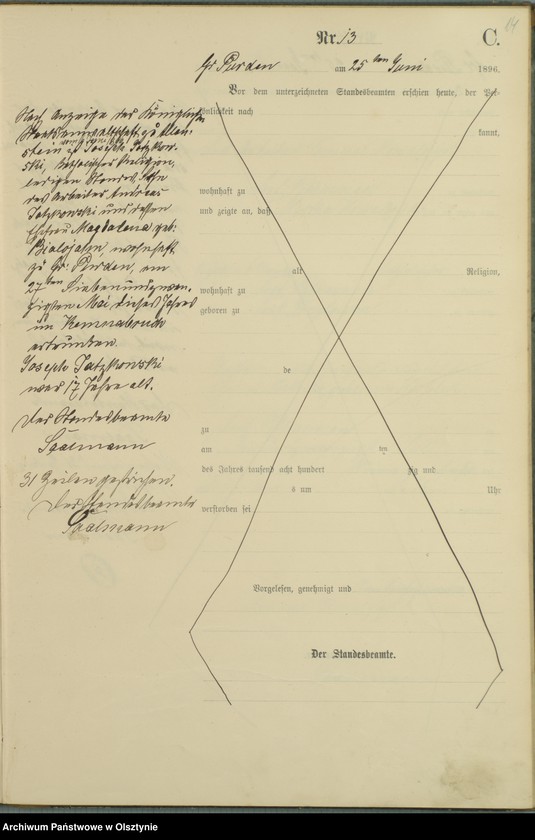 14
Nr. 13
C.
Gr. Purden am 25 ten Juni 1896.
Vor dem unterzeichneten Standesbeamten erschien heute, der Per-
sönlichkeit nach
kannt,
wohnhaft zu
und zeigte an, daß
alt Religion,
wohnhaft zu
geboren zu
de
zu
am ten
des Jahres tausend acht hundert zig und
s um Uhr
verstorben sei
Vorgelesen, genehmigt und
Der Standesbeamte.
Nach Anzeige der Königlichen
Staatsanwaltschaft zu Allen-
stein ist Joseph Jatzkow-
ski, katholischer Religion,
ledigen Standes, Sohn
des Arbeiter Andreas
Jatzkowski und dessen
Ehefrau Magdalena geb:
Bialojahn, wohnhaft
zu Gr: Purden, am
27ten Siebenundzwan-
zigsten Mai dieses Jahres
im
ertrunken.
Joseph Jatzkowski
war 17 Jahre alt.
Der Standesbeamte
Saalmann
31 Zeilen gestrichen.
Der Standesbeamte
Saalmann
Archiwum Państwowe w Olsztynie